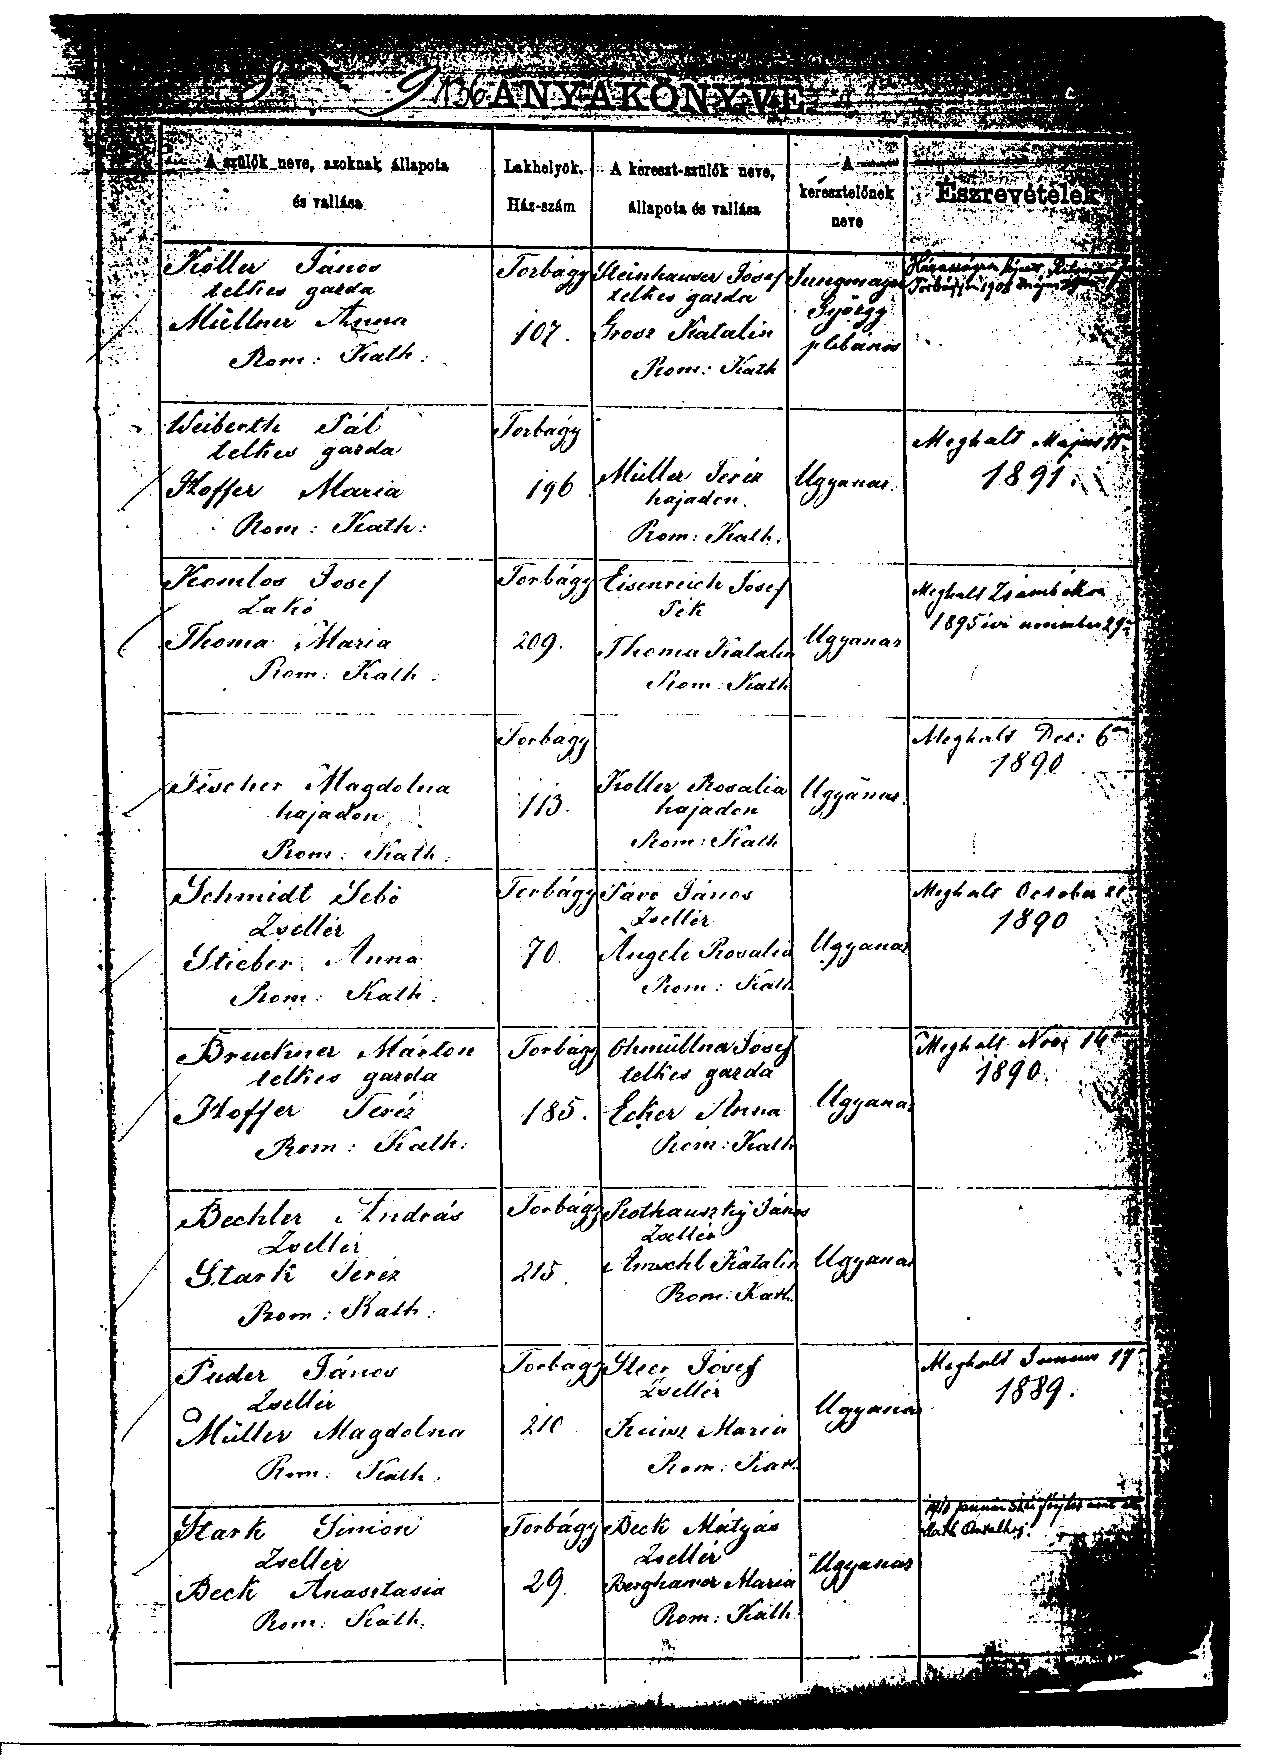 136 ANYAKÖNYVE
A szülők neve, azoknak állapota
és vallása
Lakhelyök.
Ház-szám
A kereszt-szülők neve,
állapota és vallása
A
keresztelőnek
neve
Észrevételek
Koller János
telkes gazda
Müllner Anna
Rom: Kath:
Torbágy
107.
Steinhauser Josef
telkes gazda
Grosz Katalin
Rom: Kath
Jungmayer
György
plébános
Weiberth Pál
telkes gazda
Hoffer Maria
Rom: Kath:
Torbágy
196
Müller Teréz
hajadon.
Rom: Kath.
Ugyanaz.
Meghalt Majus
1891.
Komlos Josef
Lakó
Thoma Maria
Rom: Kath.
Torbágy
209.
Eisenreich Josef
Pék
Thoma Katalin
Rom: Kath
Ugyanaz
Meghalt Zsámbékon
1895 évi november 29
Fischer Magdolna
hajadon
Rom: Kath:
Torbágy
113.
Koller Rosalia
hajadon
Rom: Kath
Ugyanaz.
Meghalt Dec: 6
1890
Schmidt Sebő
Zsellér
Stieber Anna
Rom: Kath:
Torbágy
70.
János
Zsellér
Angeli Rosalia
Rom: Kath
Ugyanaz
Meghalt October
1890
Bruckner Márton
telkes gazda
Hoffer Teréz
Rom: Kath:
Torbágy
185.
Ohmüllner Josef
telkes gazda
Ecker Anna
Rom: Kath
Ugyanaz
Meghalt Nov: 14
1890.
Bechler András
Zsellér
Stark Teréz
Rom: Kath:
Torbágy
215.
Rothauszky János
Zsellér
Katalin
Rom: Kath.
Ugyanaz
Puder János
Zsellér
Müller Magdolna
Rom: Kath.
Torbágy
210
Steer Josef
Zsellér
Maria
Rom: Kath.
Ugyanaz
Meghalt 17
1889.
Stark Simon
Zsellér
Beck Anasztasia
Rom: Kath.
Torbágy
29.
Beck Mátyás
Zsellér
Berghamer Maria
Rom: Kath
Ugyanaz